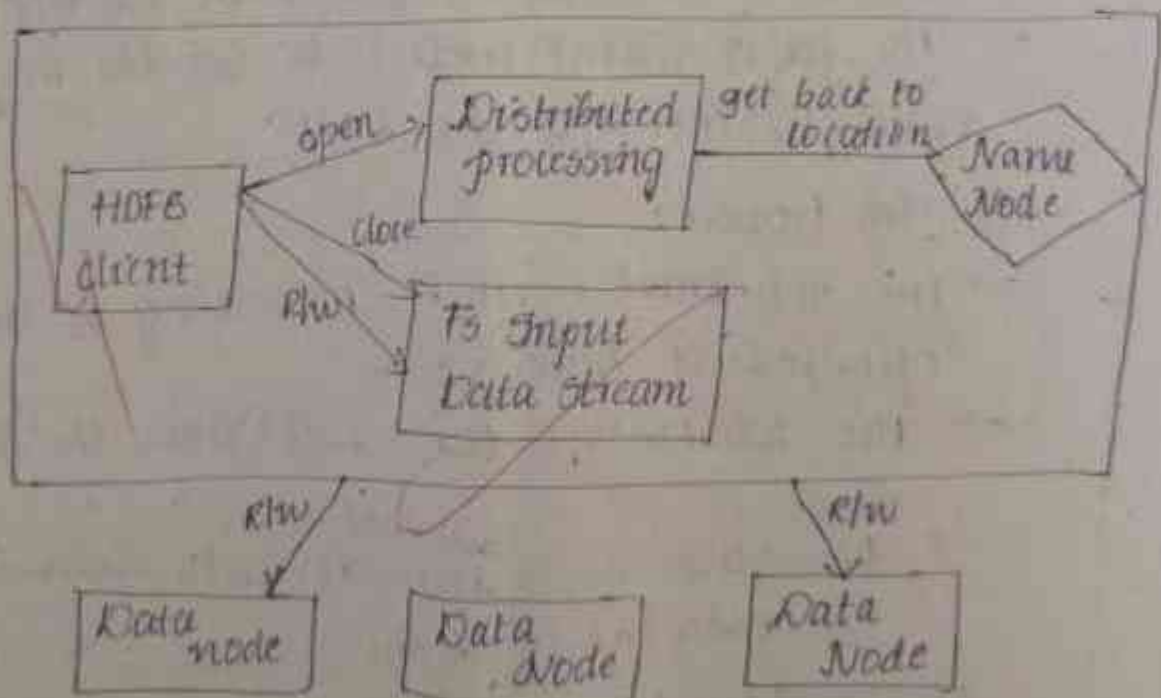 open
Distributed
processing
get back to
location
Name
Node
HDFS
client
close
R/W
Fs Input
Data Stream
R/W
R/W
Data
node
Data
Node
Data
Node